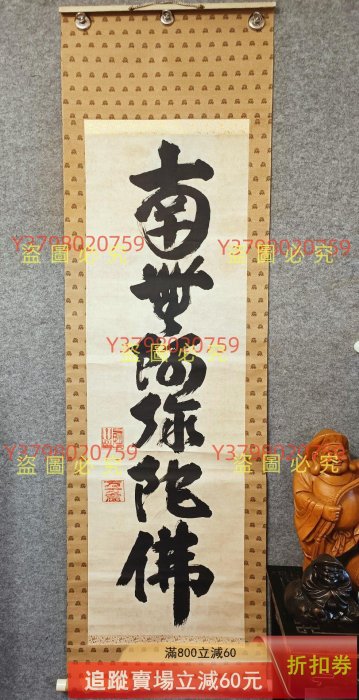 南無阿弥陀佛
Y3798020759
盜圖必究
Y3798020759
盜圖必究
Y3798020759
盜圖必究
Y3798020759
盜圖必究
Y3798020759
盜圖必究
滿800立減60
追蹤賣場立減60元
折扣券